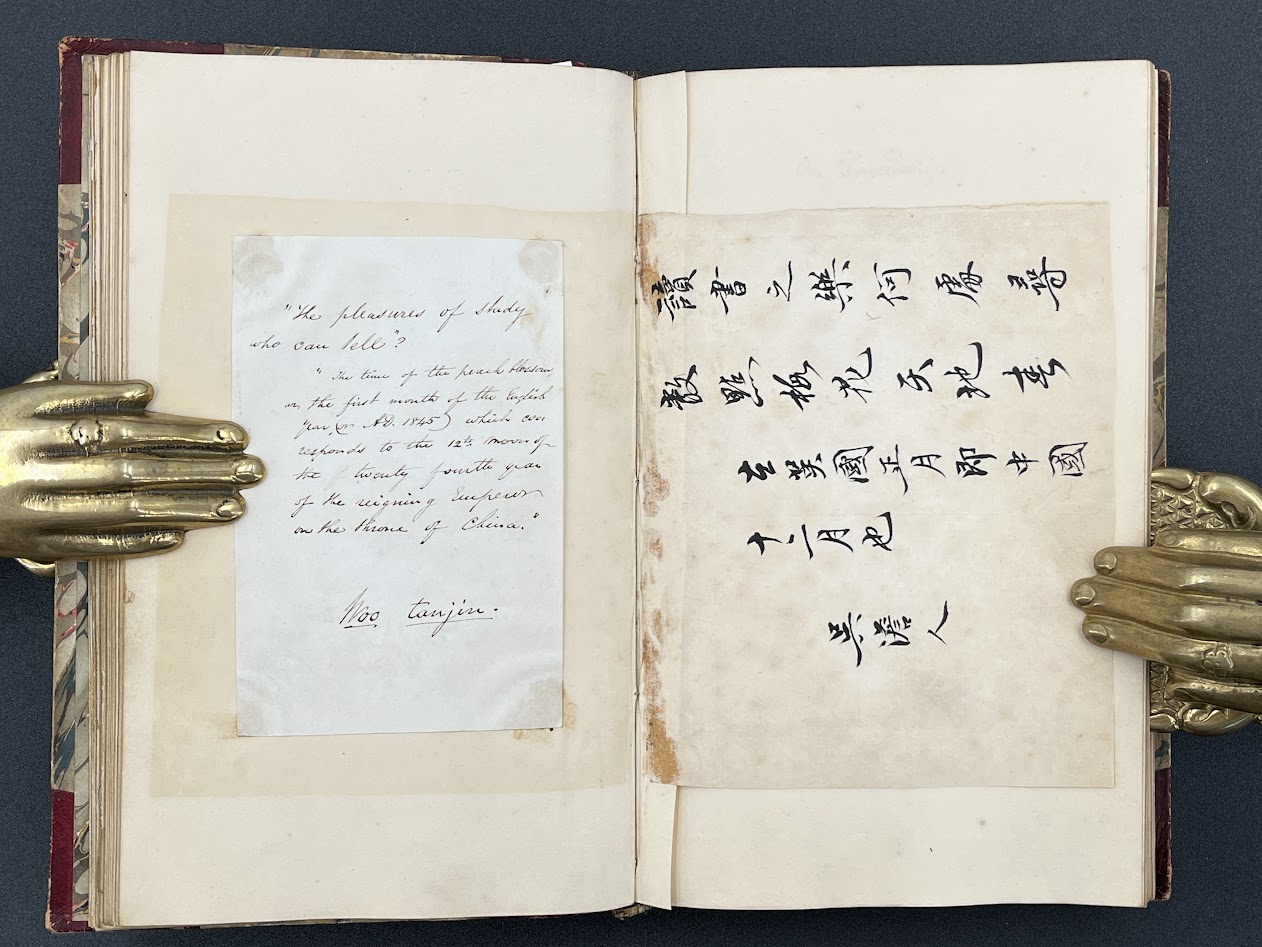 "The pleasures of study
who can tell"?
"The time of the peach blossom
in the first month of the English
year (in AD. 1845) which cor
responds to the 12th moon of
the twenty fourth year
of the reigning Emperor
on the throne of China."
Woo tanjin.
讀書之樂何處尋
数點梅花天地春
在英國正月即中國
十二月也
吳澹人